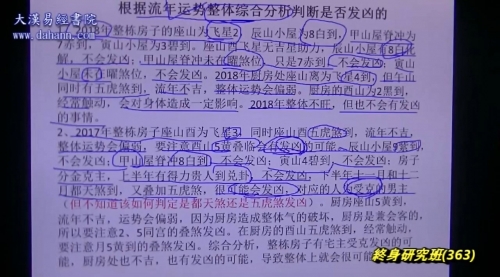 大漢易經書院
www.dahann.com
根据流年运势整体综合分析判断是否发凶的
2018年整栋房子的座山酉为飞星2，辰山小屋为8白到，甲山屋脊冲为
7赤到，寅山小屋为3碧到。座山酉飞星无吉星助力，辰山小屋有8白化
解，不会发凶；甲山屋脊冲未在曜煞位，只是7赤到，不会发凶；寅山
小屋未在曜煞位，不会发凶。2018年厨房处座山离为飞星4到，但午山
同时有五虎煞到，流年不吉，整体运势会偏弱。厨房的酉山为2黑到，
经常触动，会对身体造成一定影响。2018年整体不旺，但也不会有发凶
的事情。
2、2017年整栋房子座山酉为飞星3，同时座酉五虎煞到，流年不吉，
整体运势会偏弱，要注意酉山5黄叠临会有发凶的可能，辰山小屋9紫到，
不会发凶；甲山屋脊冲8白到，不会发凶；寅山4碧到，不会发凶；房子
分金克主，七半年有得力贵人到兑卦，不会发凶，下半年十一月和十二
月都天煞到，又叠加五虎煞，很可能会发凶，对应的人为受克的男主
（但不知道该如何判定是都天煞还是五虎煞发凶）。厨房座山5黄到，
流年不吉，运势会偏弱，因为厨房造成整体气的破坏，厨房是兼会客的，
所以要注意2、5同宫的叠煞发凶。在厨房的酉山五虎煞到，经常触动，
要注意月5黄到的叠煞发凶。综合分析，整栋房子有宅主受克发凶的可
能，厨房处也不吉，也有发凶的可能，导致整体上就会很可能
終身研究班(363)